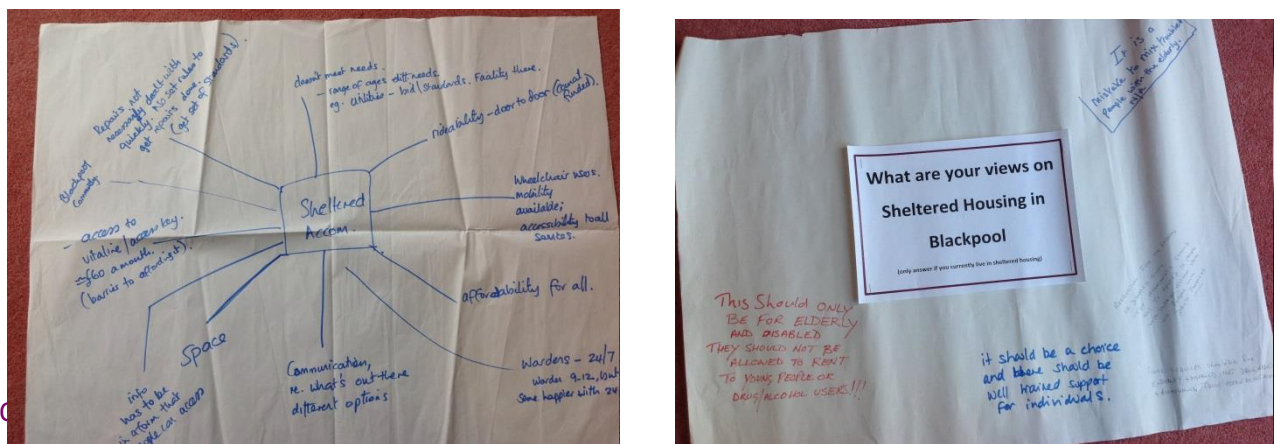 Repairs not
necessarily dealt with
quickly. No set rules to
get repairs done.
(get set of standards).
doesn't meet needs.
- range of ages diff needs.
eg. Utilities - bid/standards. Facility there.
rideability - door to door (council
funded).
Wheelchair users.
mobility
available;
accessibility to all
services.
affordability for all.
Wardens - 24/7
Warden 9-12, but
some happier with 24
Communication,
ie. what's out there
different options
Space
info
has to be
in a form that
people can access
- access to
vitaline/access key.
£60 a month.
(barrier to affording it).
Blackpool
Sheltered
Accom.
It is a
mistake to mix troubled
people with the elderly.
What are your views on
Sheltered Housing in
Blackpool
(only answer if you currently live in sheltered housing)
This Should ONLY
BE FOR ELDERLY
AND DISABLED
THEY SHOULD NOT BE
ALLOWED TO RENT
TO YOUNG PEOPLE OR
DRUG/ALCOHOL USERS!!!
it should be a choice
and there should be
well trained support
for individuals.